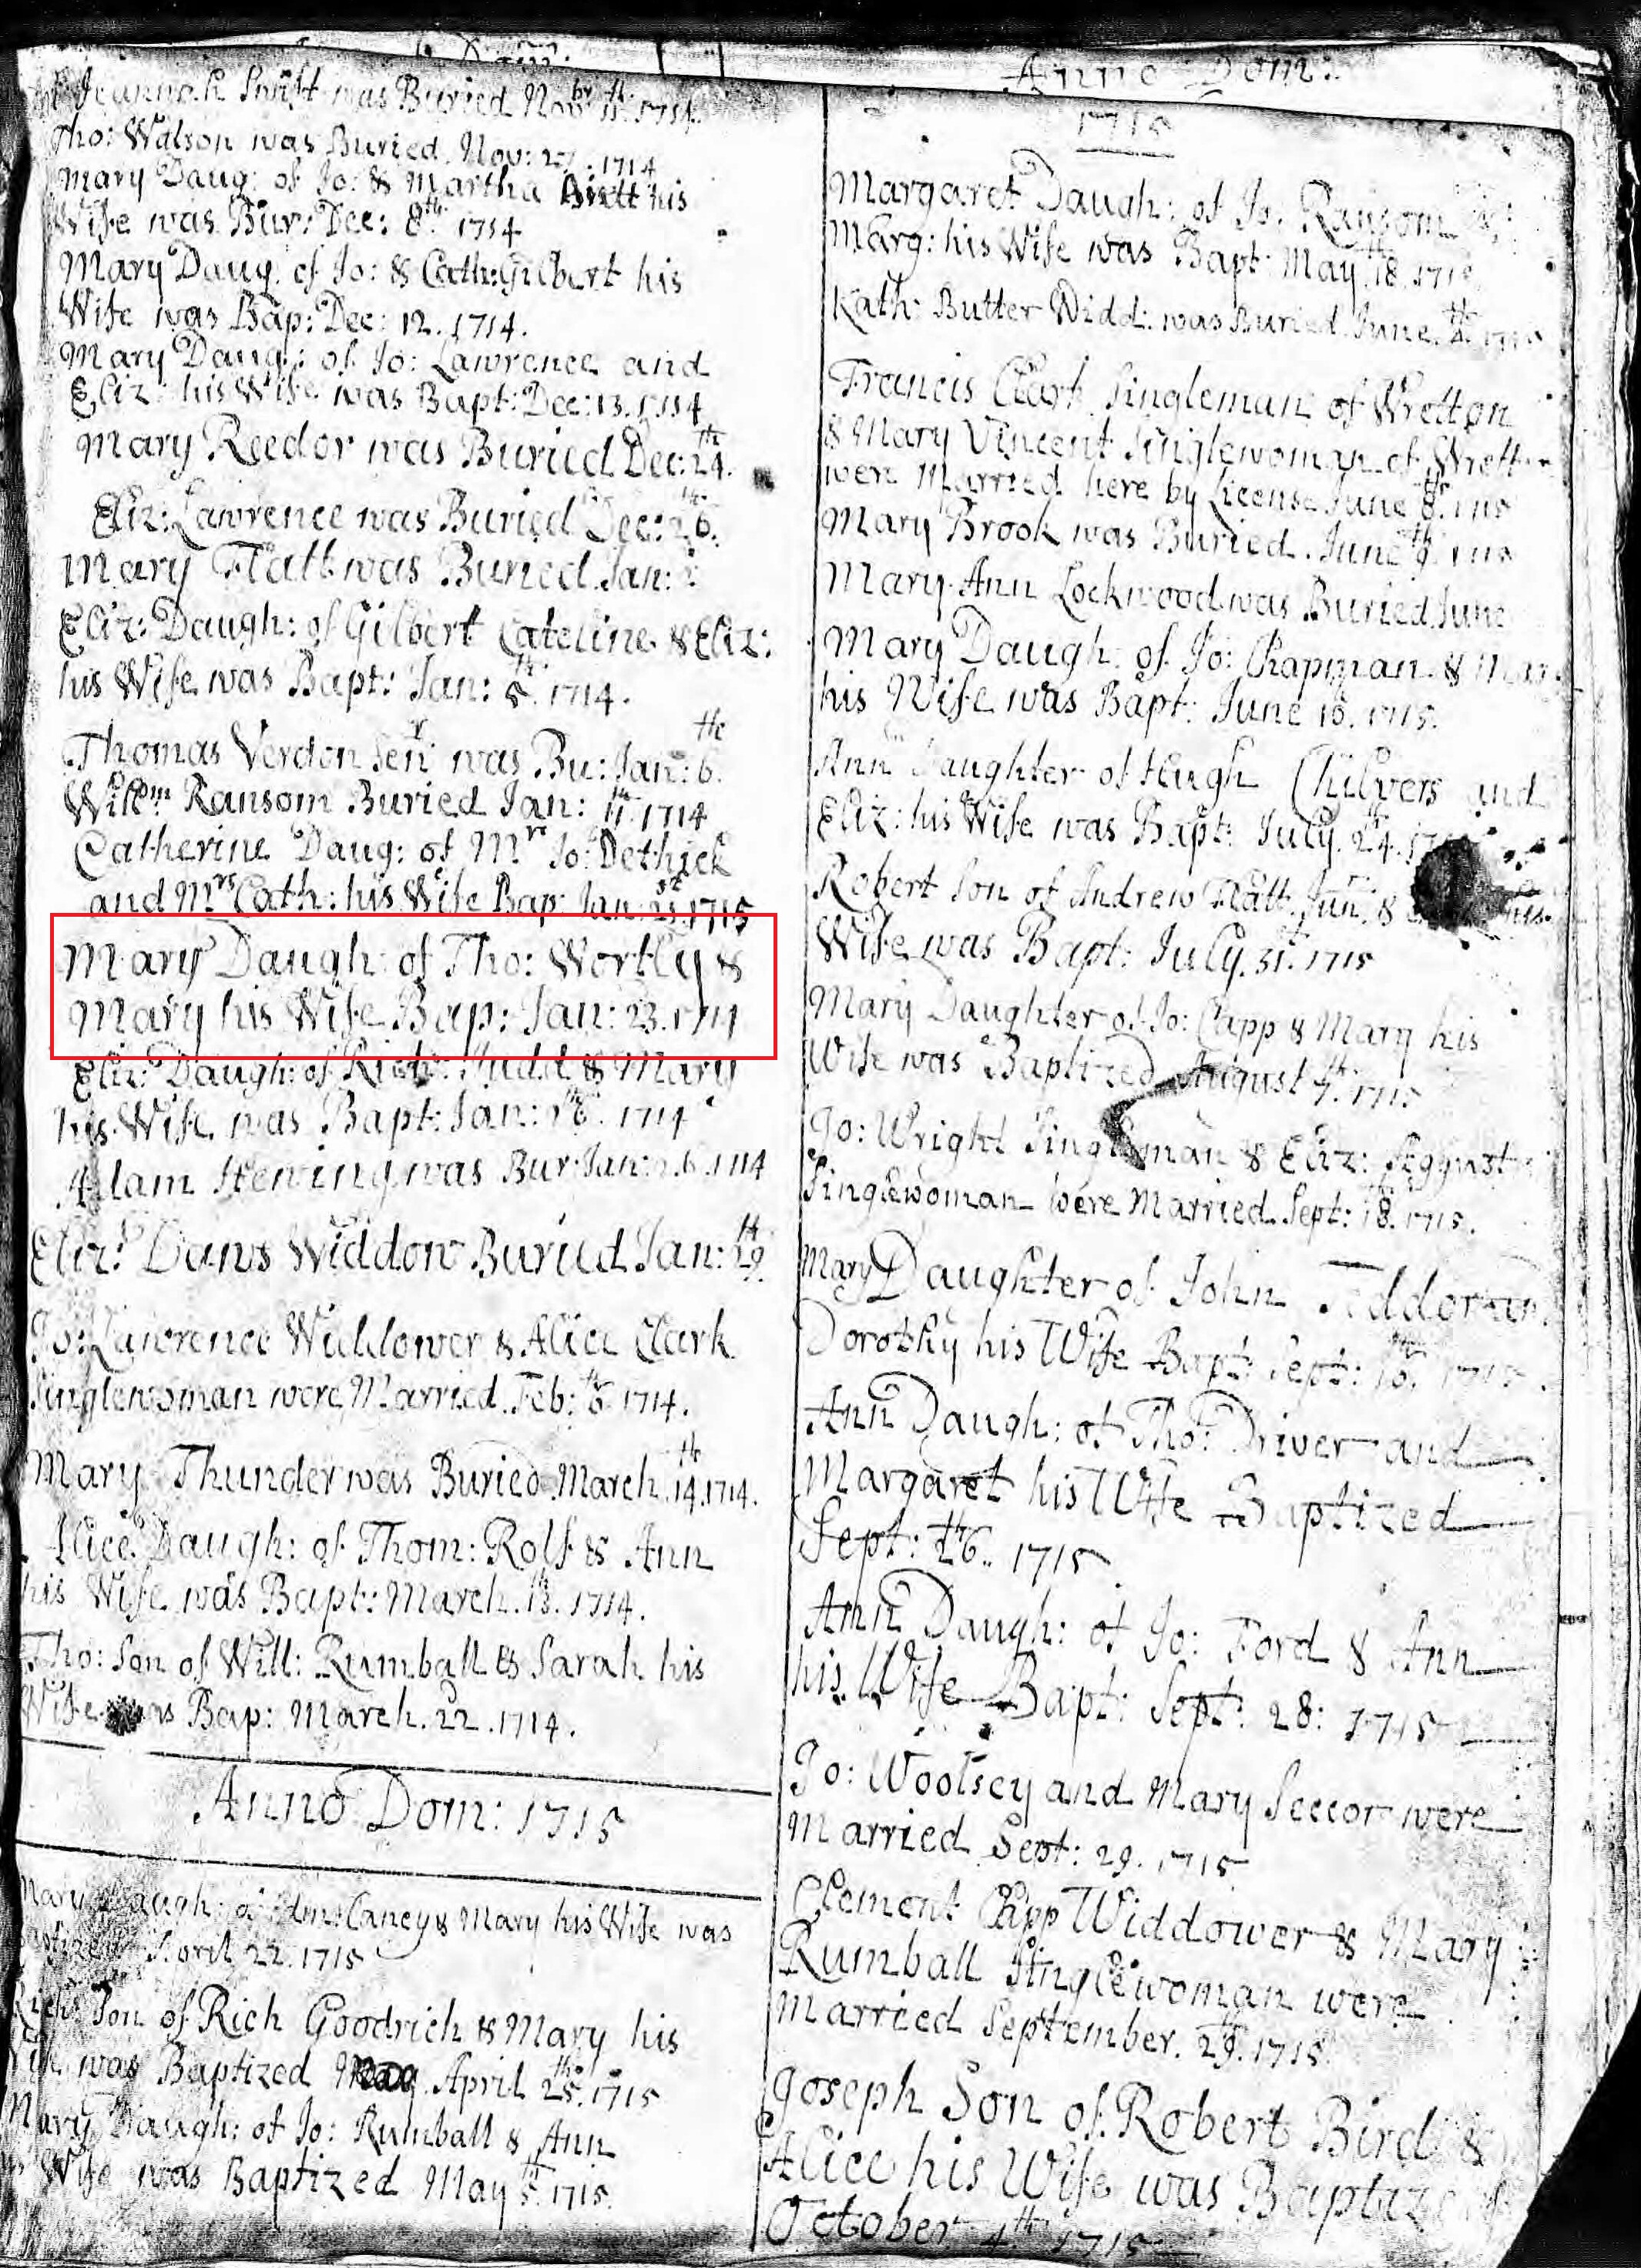 was Buried Nov:br 11th. 1714.
Tho: Watson was Buried. Nov: 1714
Mary Daug: of Jo: & Martha his
Wife was Bur: Dec: 8th. 1714
Mary Daug. of Jo: & Cath: Gilbert his
Wife was Bap: Dec: 12. 1714.
Mary Daug: of Jo: Lawrence and
Eliz: his Wife was Bapt: Dec: 13. 1714
Mary Reedor was Buried Dec: 24th.
Eliz: Lawrence was Buried Dec: 26th.
Mary Flatt was Buried Jan:
Eliz: Daugh: of Gilbert Cateline & Eliz:
his Wife was Bapt: Jan: 5th. 1714.
Thomas Verdon Senr was Bu: Jan: 6th.
Willm Ransom Buried Jan: 1714
Catherine Daug: of Mr Jo: Dethick
and Mrs Cath: his Wife Bap: Jan: 1715
Mary Daugh: of Tho: Wortly &
Mary his Wife Bap: Jan: 23. 1714
Eliz: Daugh: of Rich: Judd & Mary
his Wife was Bapt: Jan: 1714
Adam Hewing was Bur: Jan: 1714
Eliz: Daws Widdow Buried Jan: 29th.
Jo: Lawrence Widdower & Alice Clark
Singlewoman were Married. Feb: 6th. 1714.
Mary Thunder was Buried March. 14th. 1714.
Alice Daugh: of Thom: Rolf & Ann
his Wife was Bapt: March. 1714.
Tho: Son of Will: Rumball & Sarah his
Wife was Bap: March. 22. 1714.
Anno Dom: 1715
Mary Daugh: Caney & Mary his Wife was
Baptized April 22. 1715
Rich: Son of Rich Goodrich & Mary his
Wife was Baptized April 25th. 1715
Mary Daugh: of Jo: Rumball & Ann
Wife was Baptized May 5th. 1715.
Anno Dom:
1715
Margaret Daugh: of Jo. Ransom &
Marg: his Wife was Bapt: May 18th. 1715
Kath: Butter Widd: was Buried June.
Francis Clark Singleman of Wretton
& Mary Vincent Singlewoman of
were Married here by License June 8th. 1715
Mary Brook was Buried. June 9th. 1715
Mary Ann Lockwood was Buried June
Mary Daugh: of Jo: Chapman &
his Wife was Bapt: June 1715.
Ann Daughter of Hugh Chilvers and
Eliz: his Wife was Bapt: July. 24th.
Robert Son of Andrew Flatt Jun: & his
Wife was Bapt: July. 31st. 1715
Mary Daughter of Jo: Capp & Mary his
Wife was Baptized August 4th. 1715
Jo: Wright Singleman & Eliz:
Singlewoman were Married. Sept: 18. 1715.
Mary Daughter of John
Dorothy his Wife Bapt: Sept: 1715.
Ann Daugh: of Tho: Driver and
Margaret his Wife Baptized
Sept: 1715
Ann Daugh: of Jo: Ford & Ann
his Wife Bapt: Sept: 28: 1715
Jo: Woolsey and Mary Seccor were
Married Sept: 29. 1715
Clement Capp Widdower & Mary
Rumball Singlewoman were
Married September. 29th. 1715
Joseph Son of Robert Bird &
Alice his Wife was Baptized
October 4th 1715